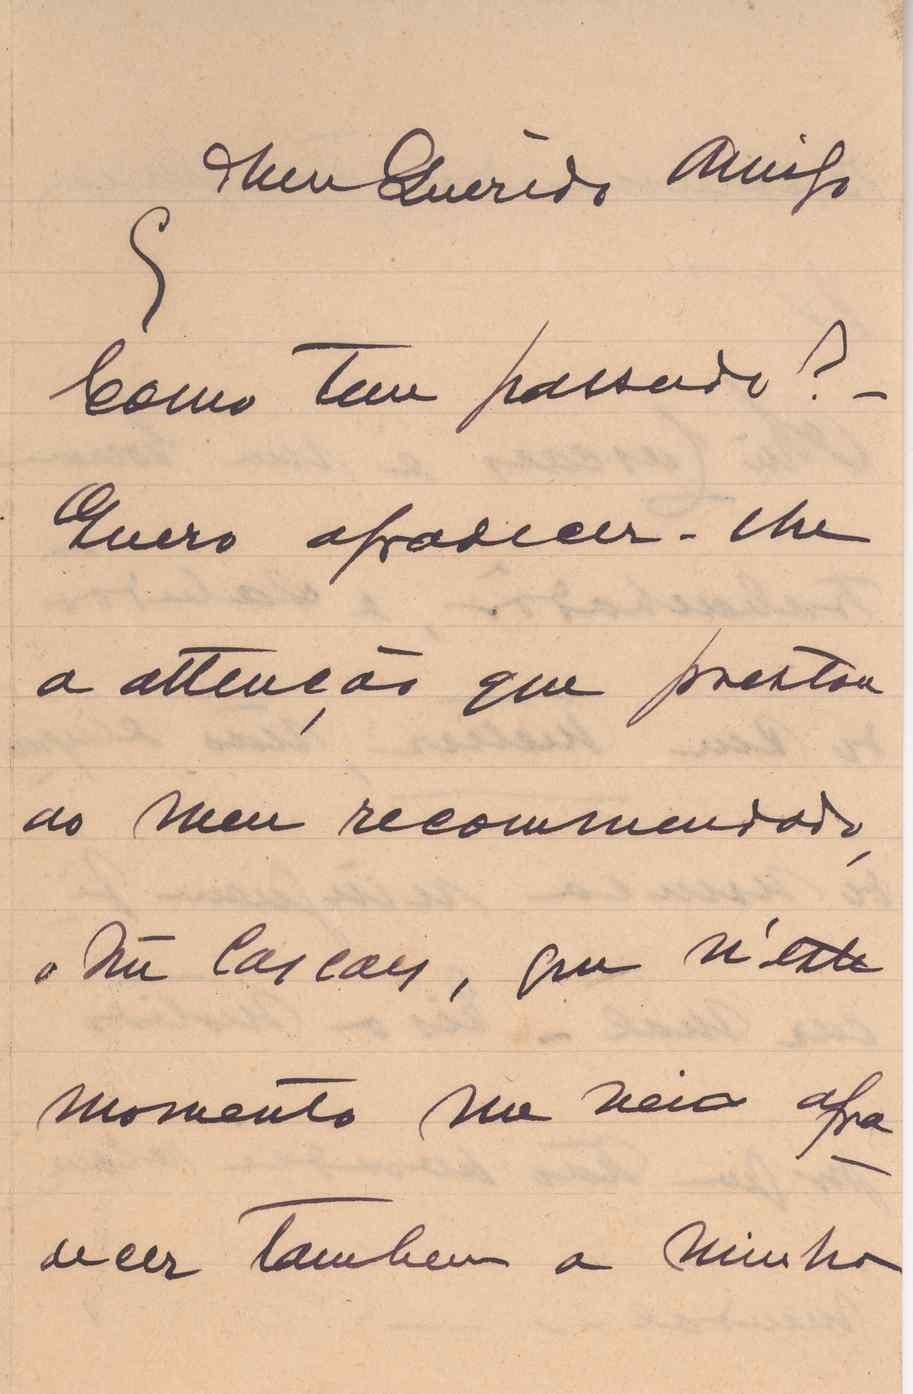 Meu Querido Amigo
Como tem passado? -
Quero agradecer-lhe
a attenção que prestou
ao meu recommendado,
o Cascaes, que n'este
momento me veio agra
decer tambem a minha